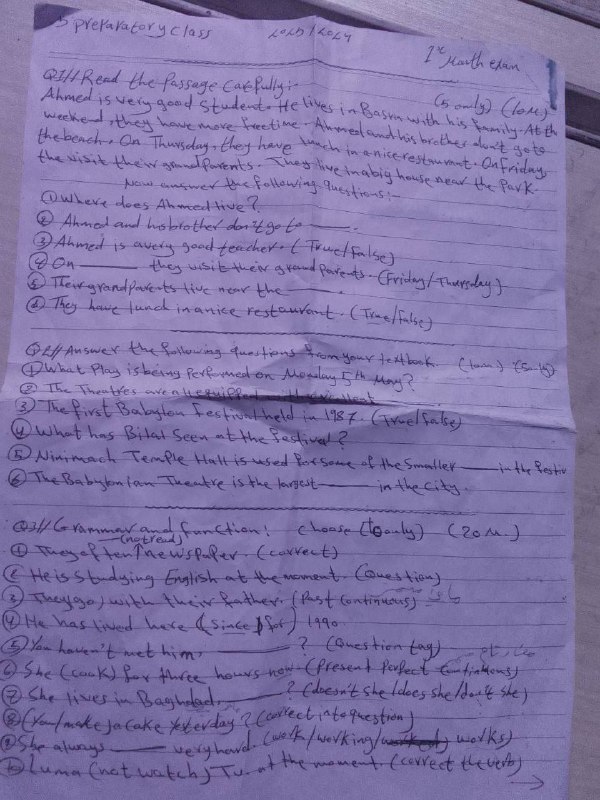 5 preparatory class 2023/2024 1st Month exam
Q1// Read the Passage Carefully:- (5 only) (10 M.)
Ahmed is very good Student. He lives in Basra with his family. At the
weekend, they have more free time. Ahmed and his brother don't go to
the bench. On Thursday, they have lunch in a nice restaurant. On Friday,
the visit their grandparents. They live in a big house near the Park.
Now answer the following questions:-
① Where does Ahmed live?
② Ahmed and his brother don't go to ———.
③ Ahmed is a very good teacher. (True/False)
④ On ——— they visit their grandparents. (Friday/Thursday)
⑤ Their grandparents live near the ———.
⑥ They have lunch in a nice restaurant. (True/False)
Q2// Answer the following questions from your textbook. (10 M.) (5 only)
① What Play is being performed on Monday 5th May?
② The Theatres are all equipped
③ The first Babylon Festival held in 1987. (True/False)
④ What has Bilal Seen at the festival?
⑤ Ninimach Temple Hall is used for some of the smaller ——— in the
⑥ The Babylonian Theatre is the largest ——— in the city.
Q3// Grammar and function: choose (10 only) (20 M.)
① They often (not read) newspaper. (correct)
② He is studying English at the moment. (Question)
③ They(go) with their father. (Past Continuous)
④ He has lived here (Since / for) 1990.
⑤ You haven't met him, ———? (Question tag)
⑥ She (cook) for three hours now. (Present Perfect Continuous)
⑦ She lives in Baghdad, ———? (doesn't she/does she/don't she)
⑧ (You/make) a cake yesterday? (correct into question)
⑨ She always ——— very hard. (work/working/ works)
⑩ Luma (not watch) Tv. at the moment. (correct the verb)
→